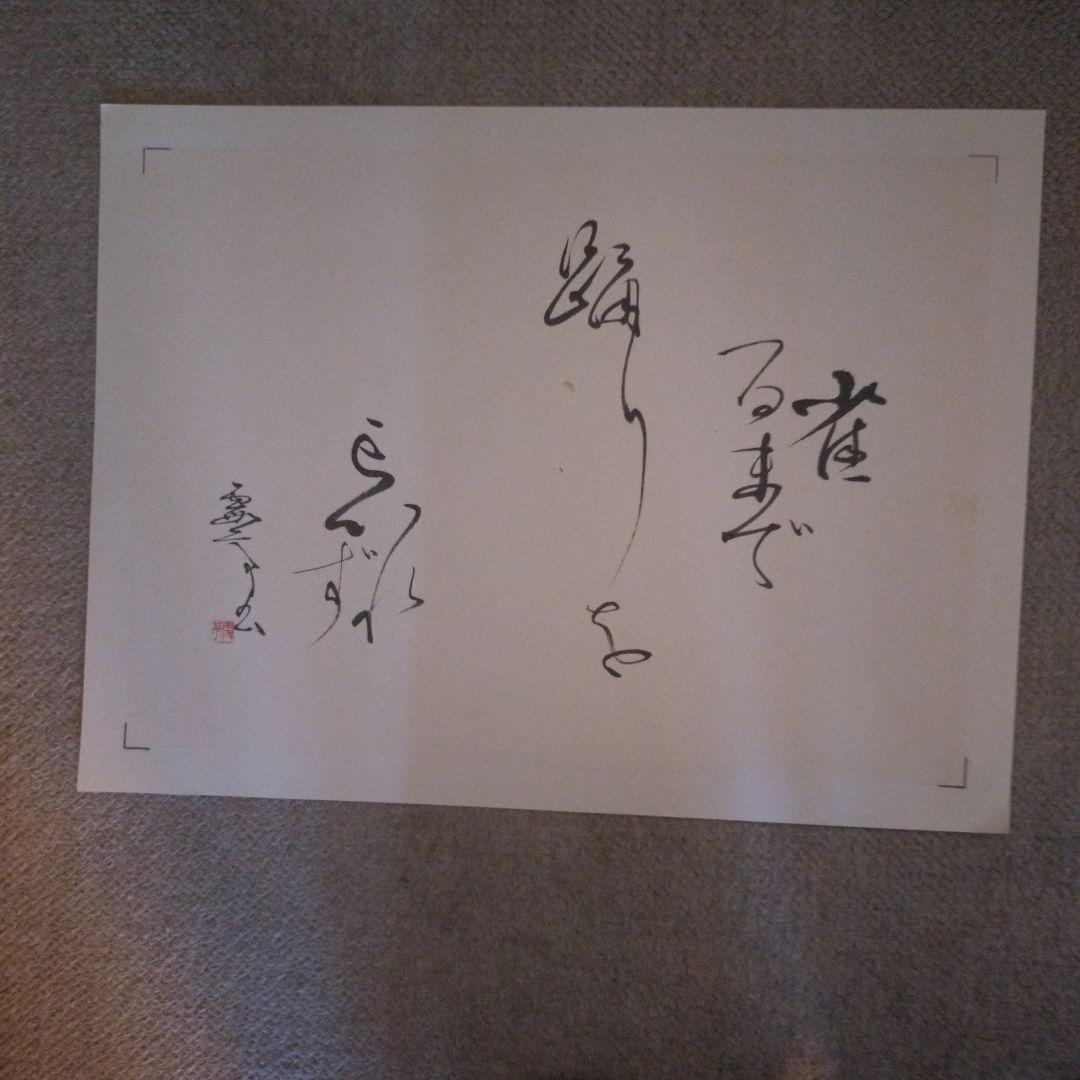 雀
百まで
踊りを
忘れず